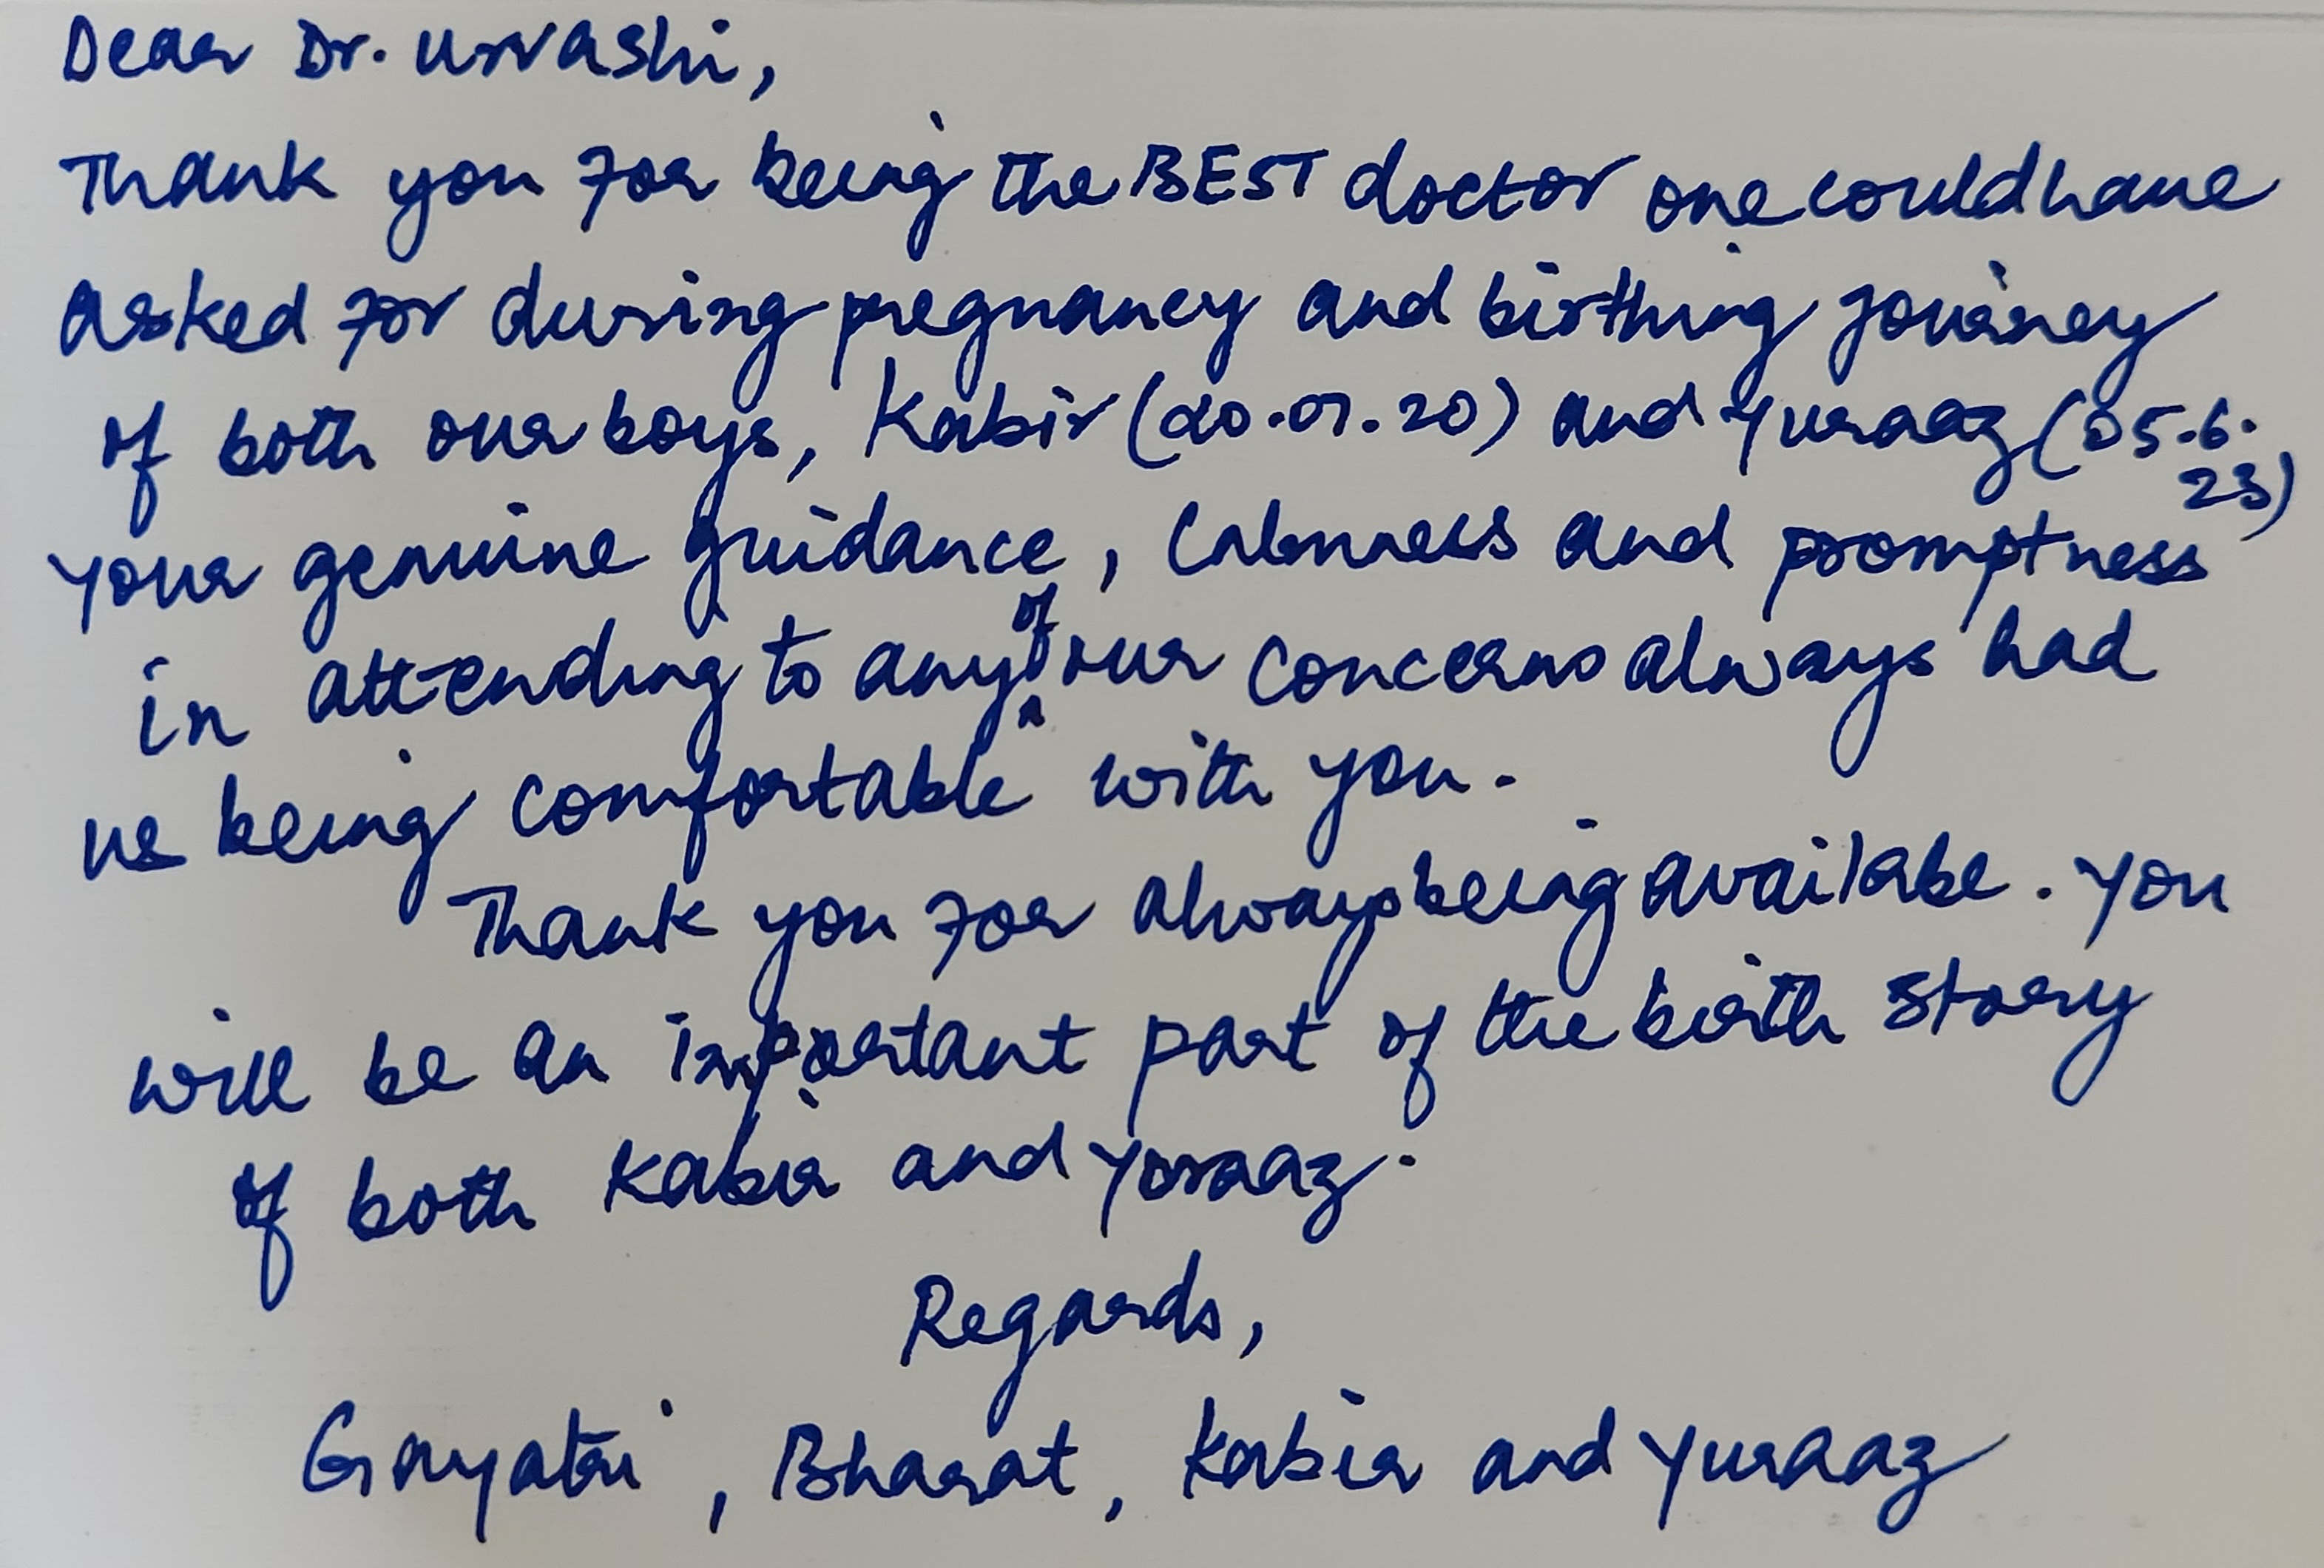 Dear Dr. Urvashi,
Thank you for being the BEST doctor one could have
asked for during pregnancy and birthing journey
of both our boys, Kabir (20.01.20) and Yuraaz (05.6.
23)
Your genuine guidance, calmness and promptness
in attending to any of our concerns always had
us being comfortable with you.
Thank you for always being availabe. You
will be an important part of the birth story
of both Kabir and Yuraaz.
Regards,
Gayatri, Bharat, Kabir and Yuraaz